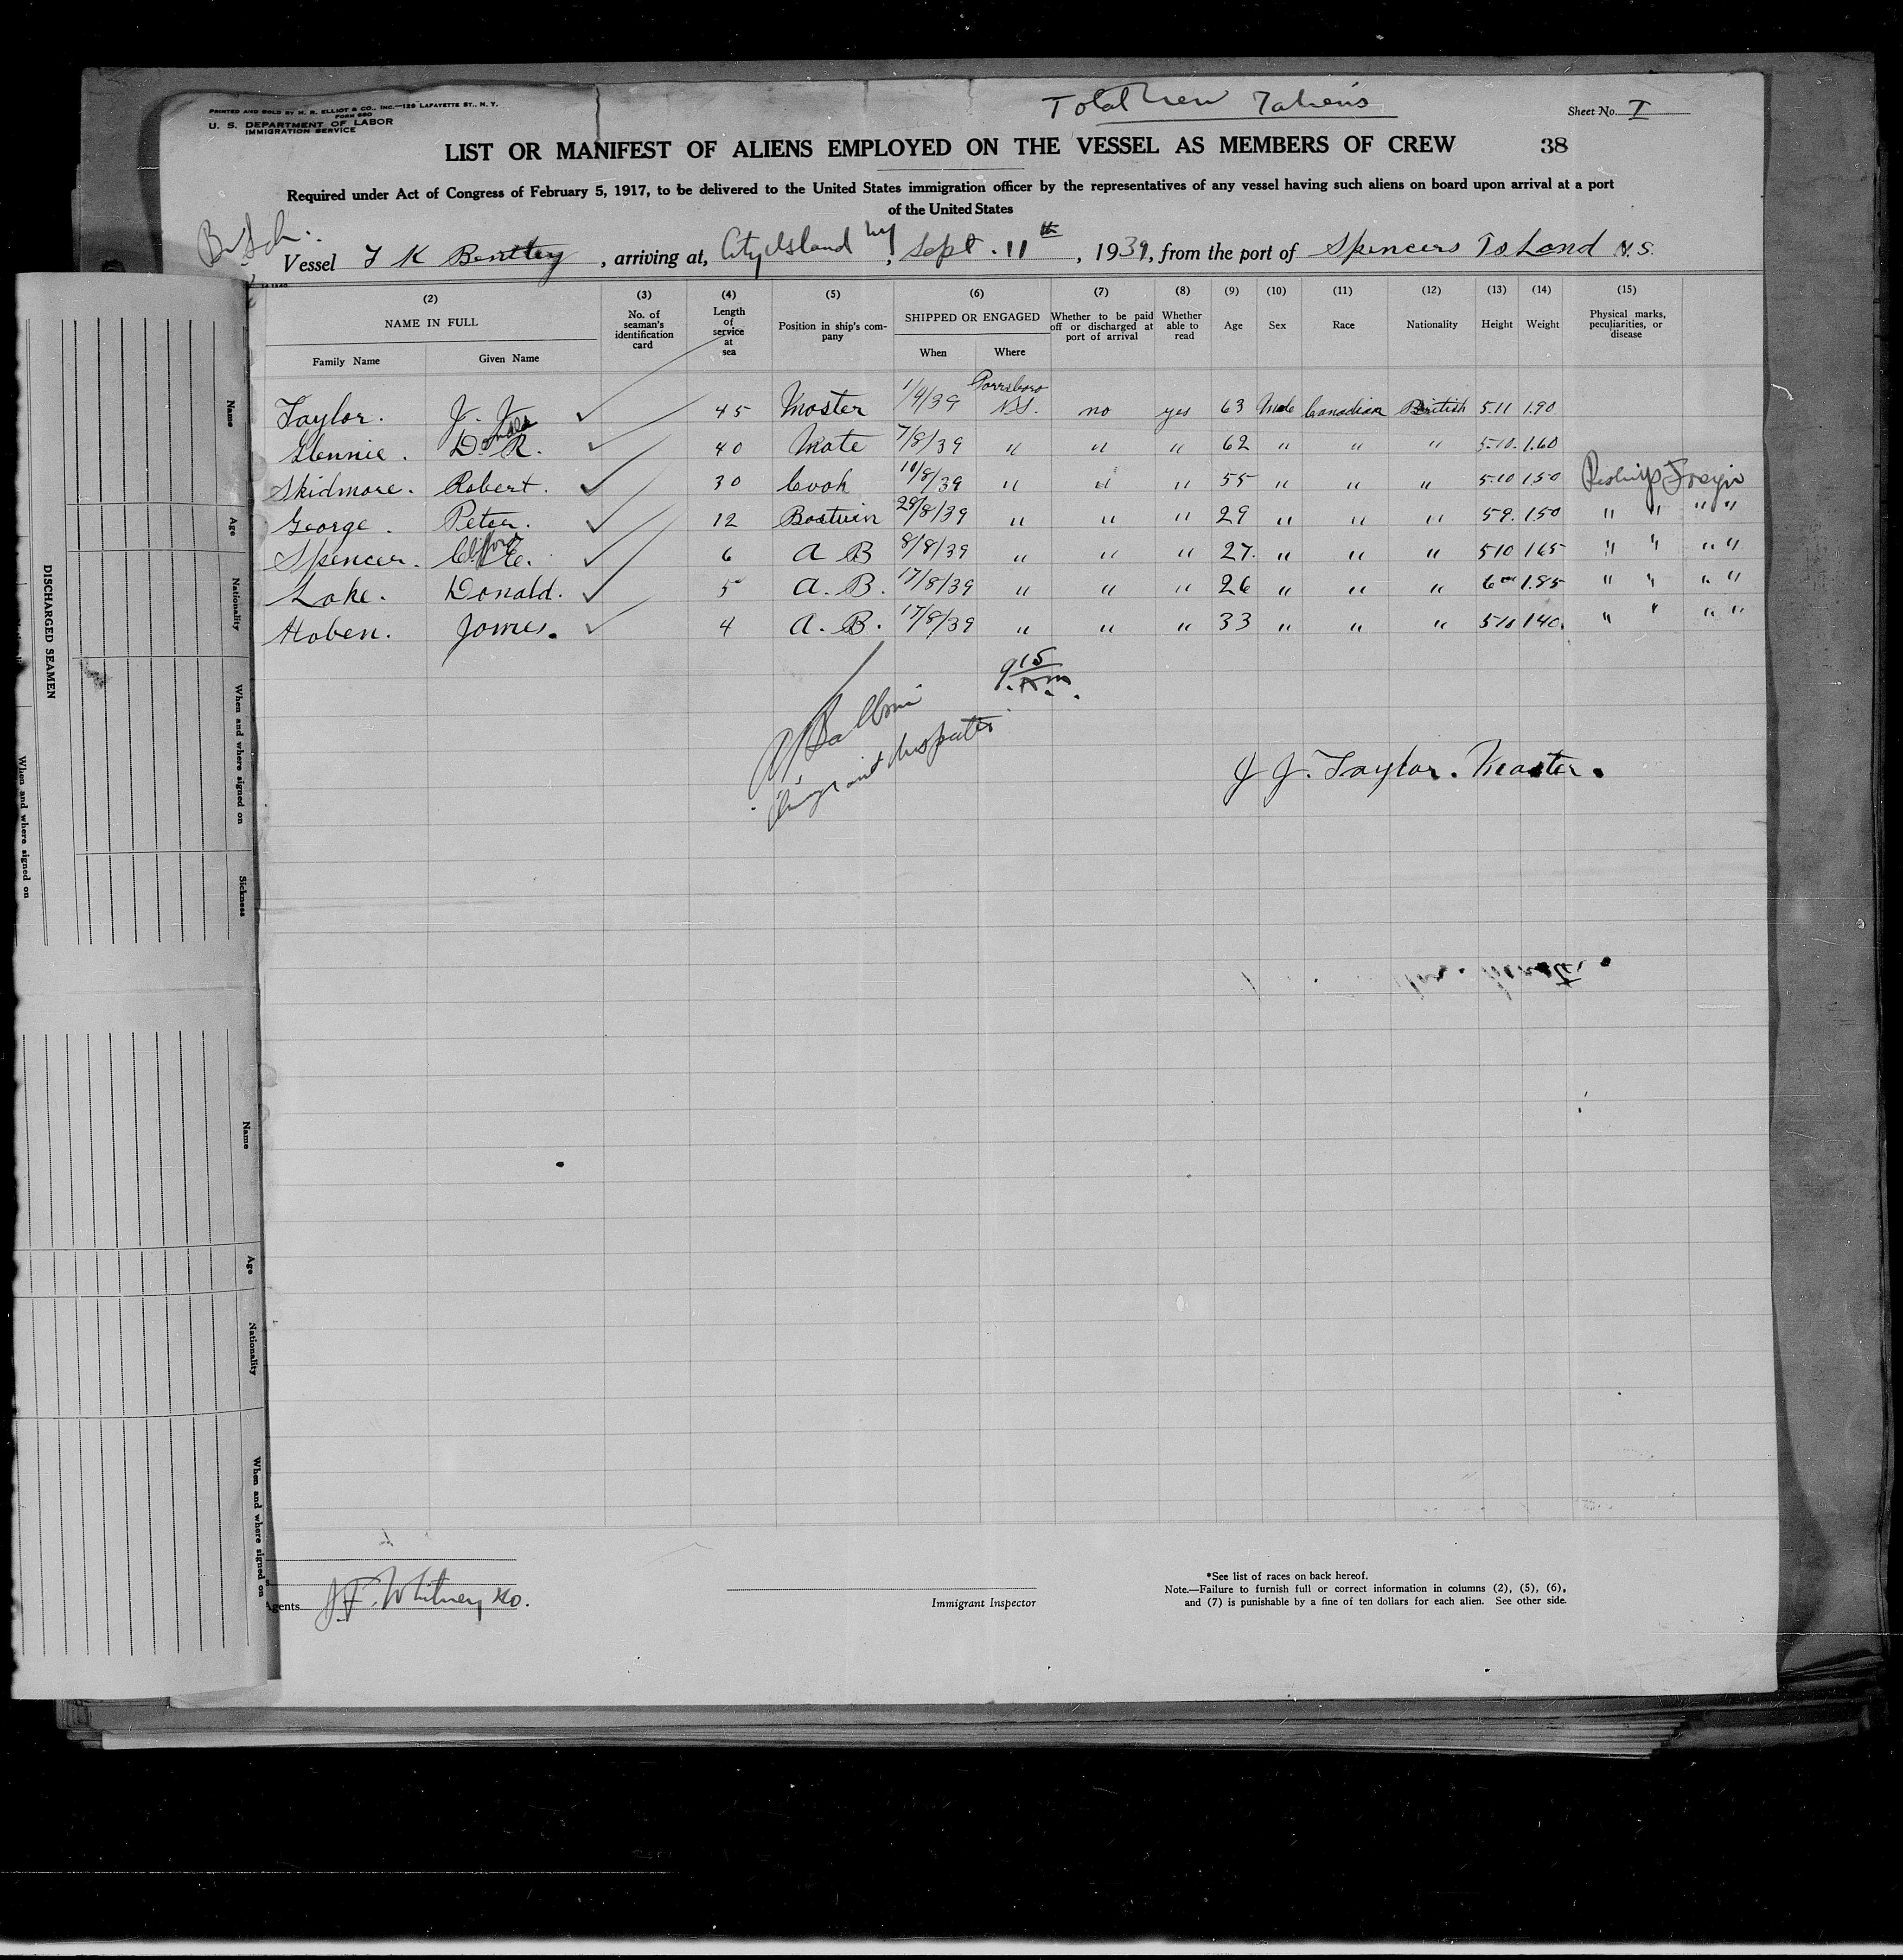 PRINTED AND SOLD BY M. R. ELLIOT & CO., INC.—129 LAFAYETTE ST., N. Y.
FORM 680
U. S. DEPARTMENT OF LABOR
IMMIGRATION SERVICE
Total Crew 7 aliens
Sheet No. I
LIST OR MANIFEST OF ALIENS EMPLOYED ON THE VESSEL AS MEMBERS OF CREW 38
Required under Act of Congress of February 5, 1917, to be delivered to the United States immigration officer by the representatives of any vessel having such aliens on board upon arrival at a port
of the United States
Br Sch.
Vessel F K Bentley, arriving at, City Island NY, Sept. 11th, 1939, from the port of Spencers Island N.S.
(2) (3) (4) (5) (6) (7) (8) (9) (10) (11) (12) (13) (14) (15)
NAME IN FULL
Family Name Given Name
No. of seaman's identification card
Length of service at sea
Position in ship's company
SHIPPED OR ENGAGED
When Where
Whether to be paid off or discharged at port of arrival
Whether able to read
Age Sex Race Nationality Height Weight
Physical marks, peculiarities, or disease
Taylor. J. J. 45 Master 1/9/39 Parrsboro N.S. no yes 63 Male Canadian British 5.11 1.90
Glennie. Donald R. 40 Mate 7/8/39 " " " 62 " " " 5.10. 1.60
Skidmore. Robert. 30 Cook 10/8/39 " " " 55 " " " 5.10 1.50 Foreign
George. Peter. 12 Boatswin 28/8/39 " " " 29 " " " 59. 1.50 " " " "
Spencer. Cliford E. 6 A B 8/8/39 " " " 27. " " " 510 165 " " " "
Lake. Donald. 5 A. B. 17/8/39 " " " 26 " " " 6 1.85 " " " "
Hoben. James. 4 A. B. 17/8/39 " " " 33 " " " 5.10 140. " " " "
9 15 A.m.
Balboni
Immigrant Inspector
J J. Taylor. Master.
DISCHARGED SEAMEN
Name
Age
Nationality
When and where signed on
Sickness
When and where signed on
Name
Age
Nationality
When and where signed on
Agents J.F. Whitney & Co.
Immigrant Inspector
*See list of races on back hereof.
Note.—Failure to furnish full or correct information in columns (2), (5), (6),
and (7) is punishable by a fine of ten dollars for each alien. See other side.